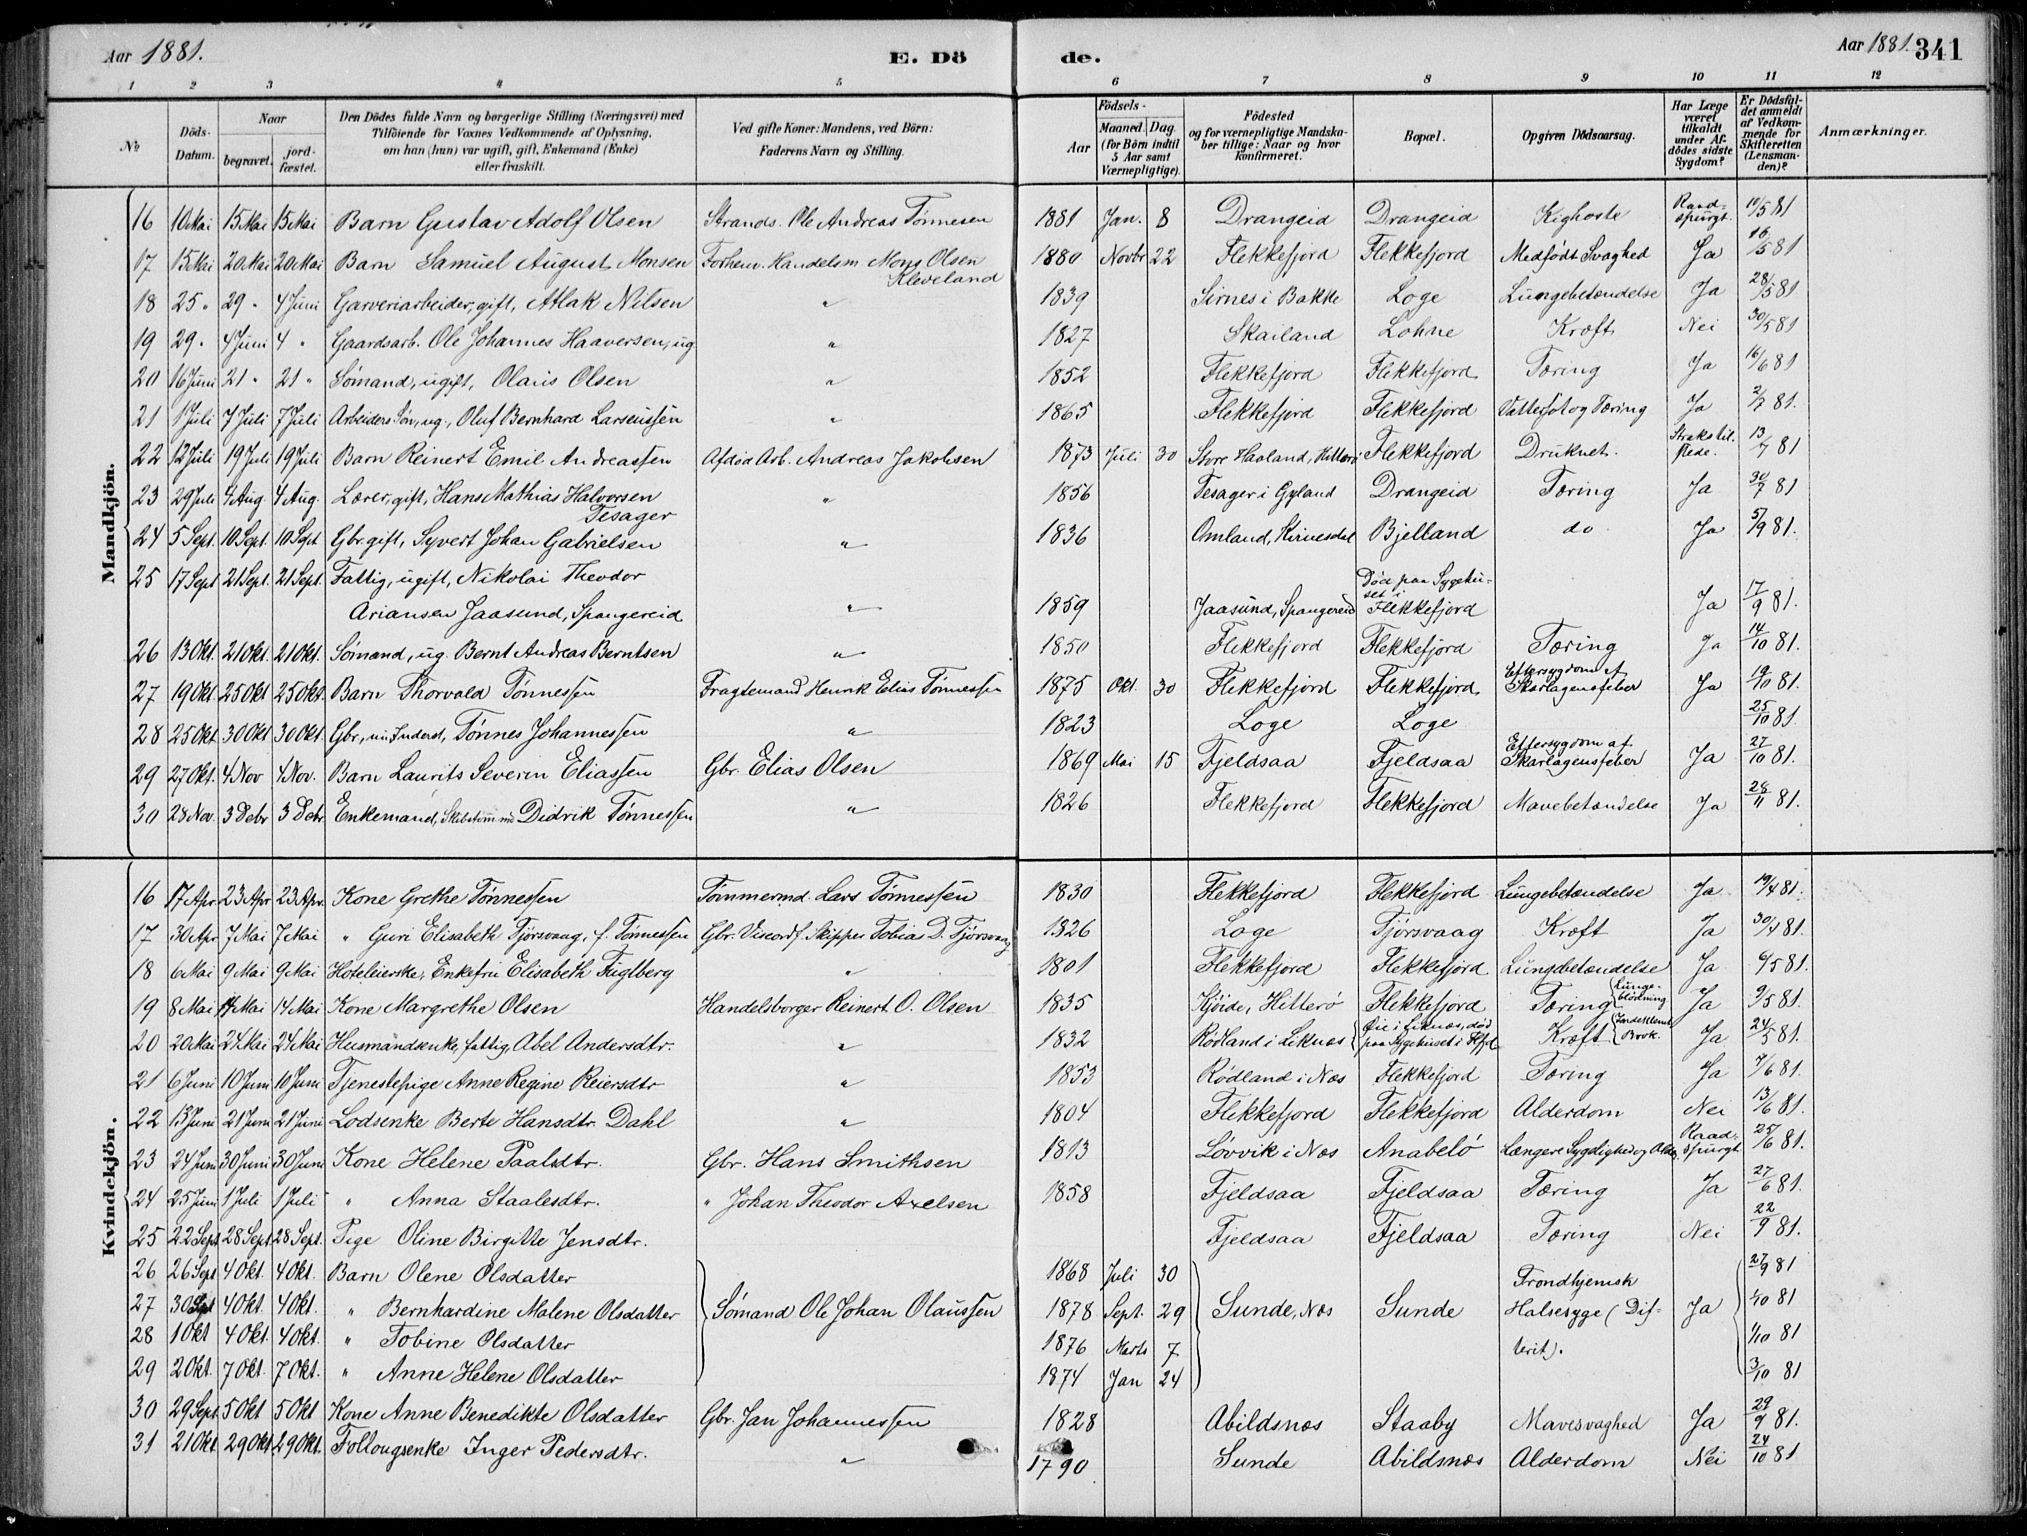 Aar 1881.
E. Dö
de.
Aar 1881. 341
1 2 3 4 5 6 7 8 9 10 11 12
No
Döds-Datum.
Naar begravet. jordfæstet.
Den Dödes fulde Navn og borgerlige Stilling (Næringsvei) med Tilföiende for Voxnes Vedkommende af Oplysning, om han (hun) var ugift, gift, Enkemand (Enke) eller fraskilt.
Ved gifte Koner: Mandens, ved Börn: Faderens Navn og Stilling.
Födsels- Aar Maaned. Dag. (for Börn indtil 5 Aar samt Værnepligtige).
Födested og for værnepligtige Mandskaber tillige: Naar og hvor konfirmeret.
Bopæl.
Opgiven Dödsaarsag.
Har Læge været tilkaldt under Afdödes sidste Sygdom?
Er Dödsfaldet anmeldt af Vedkommende for Skifteretten (Lensmanden)?
Anmærkninger.
Mandkjön.
16 10 Mai 15 Mai 15 Mai Barn Gustav Adolf Olsen Strands. Ole Andreas Tönnesen 1881 Jan. 8 Drangeid Drangeid Kighoste Raadspurgt. 10/5 81
17 15 Mai 20 Mai 20 Mai Barn Samuel August Monsen Forhenv. Handelsm. Mons Olsen Kleveland 1880 Novbr 22 Flekkefjord Flekkefjord Medfödt Svaghed Ja 16/5 81
18 25 " 29 " 4 Juni Garveriarbeider, gift, Atlak Nilsen " 1839 Sirnes i Bakke Loge Lungebetændelse Ja 28/5 81
19 29 " 4 Juni 4 " Gaardsarb. Ole Johannes Haaversen, ug. " 1827 Skailand Lohne Kræft Nei 30/5 81
20 16 Juni 21 " 21 " Sømand, ugift, Olaus Olsen " 1852 Flekkefjord Flekkefjord Tæring Ja 16/6 81
21 1 Juli 7 Juli 7 Juli Arbeiders Søn, ug., Oluf Bernhard Larseussen " 1865 Flekkefjord Flekkefjord Vattersot og Tæring Ja 2/7 81.
22 12 Juli 19 Juli 19 Juli Barn Reinert Emil Andreassen Afdød Arb. Andreas Jakobsen 1873 Juli 30 Store Haaland, Hitterö Flekkefjord Druknet. Straks tilstede. 13/7 81
23 29 Juli 4 Aug. 4 Aug. Lærer, gift, Hans Mathias Halvorsen Tesager " 1856 Tesager i Gyland Drangeid Tæring Ja 30/7 81
24 5 Sept. 10 Sept. 10 Sept Gbr. gift, Syvert Johan Gabrielsen " 1836 Omland, Kvinesdal Bjelland do Ja 5/9 81.
25 17 Sept 21 Sept. 21 Sept. Fattig, ugift, Nikolai Theodor
Ariansen Jaasund, Spangereid " 1859 Jaasund, Spangereid Död paa Sygehuset i Flekkefjord Ja 17/9 81.
26 13 Okt. 21 Okt. 21 Okt. Sømand, ug. Bernt Andreas Berntsen " 1850 Flekkefjord Flekkefjord Tæring Ja 14/10 81.
27 19 Okt. 25 Okt 25 Okt. Barn Thorvald Tönnessen Fragtemand Henrik Elias Tönnessen 1875 Okt. 30 Flekkefjord Flekkefjord Eftersygdom af Skarlagensfeber Ja 19/10 81.
28 25 Okt. 30 Okt 30 Okt. Gbr., Tönnes Johannessen " 1823 Loge Loge 25/10 81.
29 27 Okt. 4 Nov 4 Nov. Barn Laurits Severin Eliassen Gbr. Elias Olsen 1869 Mai 15 Fjeldsaa Fjeldsaa Eftersygdom af Skarlagensfeber Ja 27/10 81.
30 28 Nov. 3 Debr 3 Debr Enkemand, Didrik Tönnessen " 1826 Flekkefjord Flekkefjord Mavebetændelse Ja 28/11 81.
Kvindekjön.
16 17 Apr. 23 Apr 23 Apr. Kone Grethe Tönnessen Tömmermd. Lars Tönnessen 1830 Flekkefjord Flekkefjord Lungebetændelse Ja 19/4 81.
17 30 Apr. 7 Mai 7 Mai " Guri Elisabeth Tjörsvaag, f. Tönnessen Gbr. Viceordf. Skipper Tobias D. Tjörsvaag 1826 Loge Tjörsvaag Kræft Ja 30/4 81.
18 6 Mai 9 Mai 9 Mai Hoteleierske, Enkefru Elisabeth Fuglberg " 1801 Flekkefjord Flekkefjord Lungebetændelse Ja 6/5 81.
19 8 Mai 14 Mai 14 Mai Kone Margrethe Olsen Handelsborger Reinert O. Olsen 1835 Kjöide, Hitterö Flekkefjord Tæring Lungeblödning Ja 9/5 81.
20 20 Mai 24 Mai 24 Mai Husmandsenke, fattig, Abel Andersdtr. " 1832 Rödland i Leknæs Öie i Leknæs, död paa Sygehuset i Flfjd. Kræft Indeklemt Brok. Ja 24/5 81.
21 6 Juni 10 Juni 10 Juni Tjenestepige Anne Regine Reiersdtr " 1853 Rödland i Næs Flekkefjord Tæring Ja 7/6 81.
22 13 Juni 21 Juni 21 Juni Lodsenke Berte Hansdtr. Dahl " 1804 Flekkefjord Flekkefjord Alderdom Nei 13/6 81.
23 24 Juni 30 Juni 30 Juni Kone Helene Paalsdtr. Gbr. Hans Smithsen 1813 Lövvik i Næs Anabelö Længere Sygelighed og Alder. Raadspurgt 25/6 81.
24 25 Juni 1 Juli 1 Juli " Anna Staalesdtr. " Johan Theodor Axelsen 1858 Fjeldsaa Fjeldsaa Tæring Ja 27/6 81.
25 22 Sept. 28 Sept 28 Sept. Pige Oline Birgitte Jensdtr. Fjeldsaa Fjeldsaa Tæring Nei 22/9 81.
26 26 Sept 4 Okt. 4 Okt. Barn Olene Olsdatter 1868 Juli 30 Trondhjemsk 27/9 81
27 30 Sept 4 Okt. 4 Okt. " Bernhardine Malene Olsdatter Sømand Ole Johan Olaussen 1878 Sept. 29 Sunde, Næs Sunde Halsesyge (Dif- Ja 1/10 81
28 1 Okt 4 Okt. 4 Okt. " Tobine Olsdatter 1876 Marts 7 terit). 1/10 81
29 2 Okt. 7 Okt. 7 Okt. " Anne Helene Olsdatter 1874 Jan 24 3/10 81
30 29 Sept. 5 Okt 5 Okt Kone Anne Benedikte Olsdatter Gbr. Jan Johannessen 1828 Abildsnæs Staaby Mavesvaghed Ja 29/9 81.
31 21 Okt. 29 Okt. 29 Okt. Follougsenke Inger Pedersdtr. " 1790 Sunde Abildsnæs Alderdom Nei 24/10 81